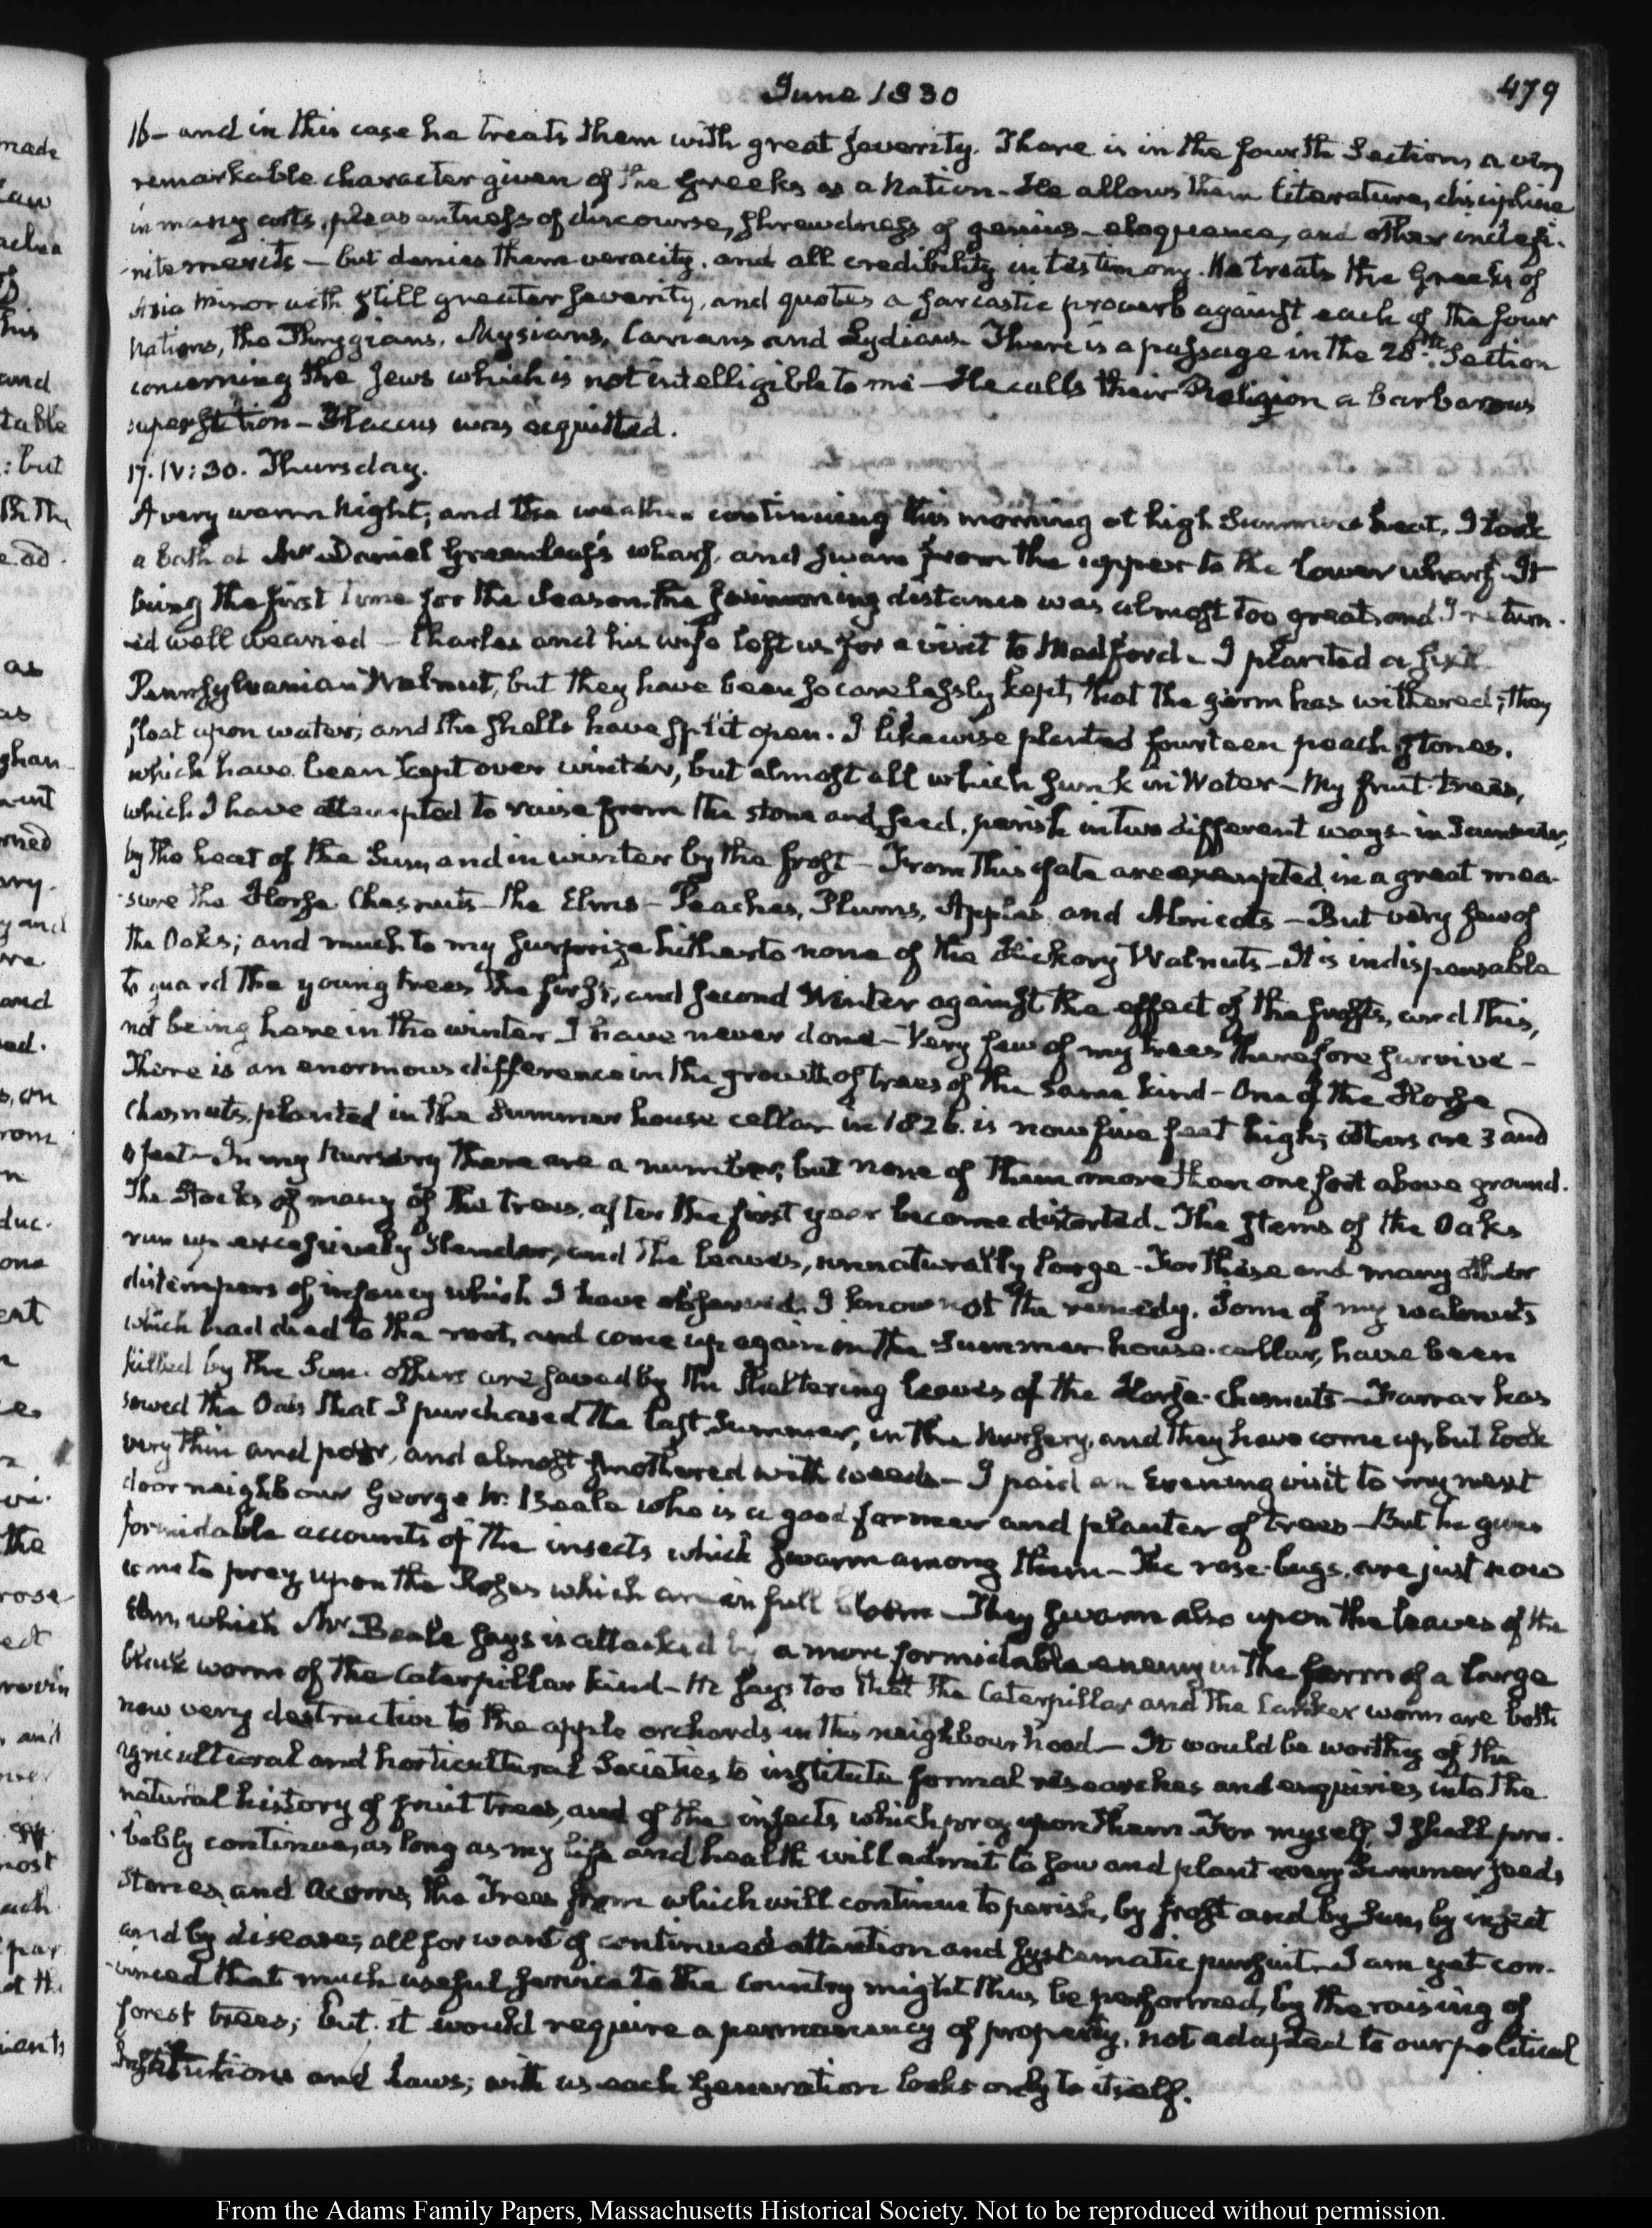 June 1830
479
16 — and in this case he treats them with great severity. There is in the fourth Section, a very
remarkable character given of the Greeks as a Nation. He allows them literature, discipline
in many arts, pleasantness of discourse, shrewdness of genius — eloquence, and other indefi-
nite merits — but denies them veracity, and all credibility in testimony. He treats the Greeks of
Asia Minor with still greater severity, and quotes a sarcastic proverb against each of the four
Nations, the Phrygians, Mysians, Carians and Lydians. There is a passage in the 28th. Section
concerning the Jews which is not intelligible to me — He calls their Religion a barbarous
superstition — Flaccus was acquitted.
17. IV: 30. Thursday.
A very warm Night; and the weather continuing this morning at high Summer heat, I took
a bath at Mr Daniel Greenleaf's wharf, and swam from the upper to the lower wharf. It
being the first time for the Season the swimming distance was almost too great, and I return-
ed well wearied — Charles and his wife left us for a visit to Medford — I planted a
Pennsylvanian Walnut, but they have been so carelessly kept, that the germ has withered; they
float upon water; and the shells have split open. I likewise planted fourteen peach stones,
which have been kept over winter, but almost all which sunk in Water — My fruit-trees,
which I have attempted to raise from the stone and seed, perish in two different ways — in Summer,
by the heat of the Sun, and in winter by the frost — From this fate are exempted in a great mea-
sure the Horse Chesnuts — the Elms — Peaches, Plums, Apples and Abricots — But very few of
the Oaks; and much to my surprize hitherto none of the Hickory Walnuts — It is indispensable
to guard the young trees the first, and second Winter against the effect of the frosts, and this,
not being here in the winter I have never done — Very few of my trees therefore survive —
There is an enormous difference in the growth of trees of the same kind — One of the Horse
Chesnuts, planted in the Summer house cellar in 1826. is now five feet high; others are 3 and
feet — In my Nursery there are a number; but none of them more than one foot above ground.
The Stocks of many of the trees, after the first year become distorted. The stems of the Oaks
run up excessively slender, and the leaves, unnaturally large — For these and many other
distempers of infancy which I have observed, I know not the remedy. Some of my walnuts
which had died to the root, and come up again in the Summer house cellar, have been
killed by the Sun. others are saved by the sheltering leaves of the Horse-chesnuts — Farrar has
sowed the Oats that I purchased the last Summer, in the Nursery, and they have come up, but look
very thin and poor, and almost smothered with weeds — I paid an Evening visit to my next
door neighbour George W. Beale who is a good farmer and planter of trees — But he gives
formidable accounts of the insects which swarm among them — The rose-bugs, are just now
come to prey upon the Roses which are in full bloom — They swarm also upon the leaves of the
Elm, which Mr Beale says is attacked by a more formidable enemy in the form of a large
black worm of the Caterpillar kind — He says too that the Caterpillar and the Canker worm are both
now very destructive to the apple orchards in this neighbourhood — It would be worthy of the
agricultural and horticultural Societies to institute formal researches and enquiries into the
natural history of fruit trees, and of the insects which prey upon them. For myself, I shall pro-
bably continue, as long as my life and health will admit to sow and plant every Summer seeds,
stones, and acorns, the Trees from which will continue to perish, by frost and by Sun, by insect
and by disease, all for want of continued attention and systematic pursuit. I am yet con-
vinced that much useful service to the Country might thus be performed, by the raising of
forest trees; but it would require a permanency of property, not adapted to our political
Institutions and Laws; with us each Generation looks only to itself.
From the Adams Family Papers, Massachusetts Historical Society. Not to be reproduced without permission.